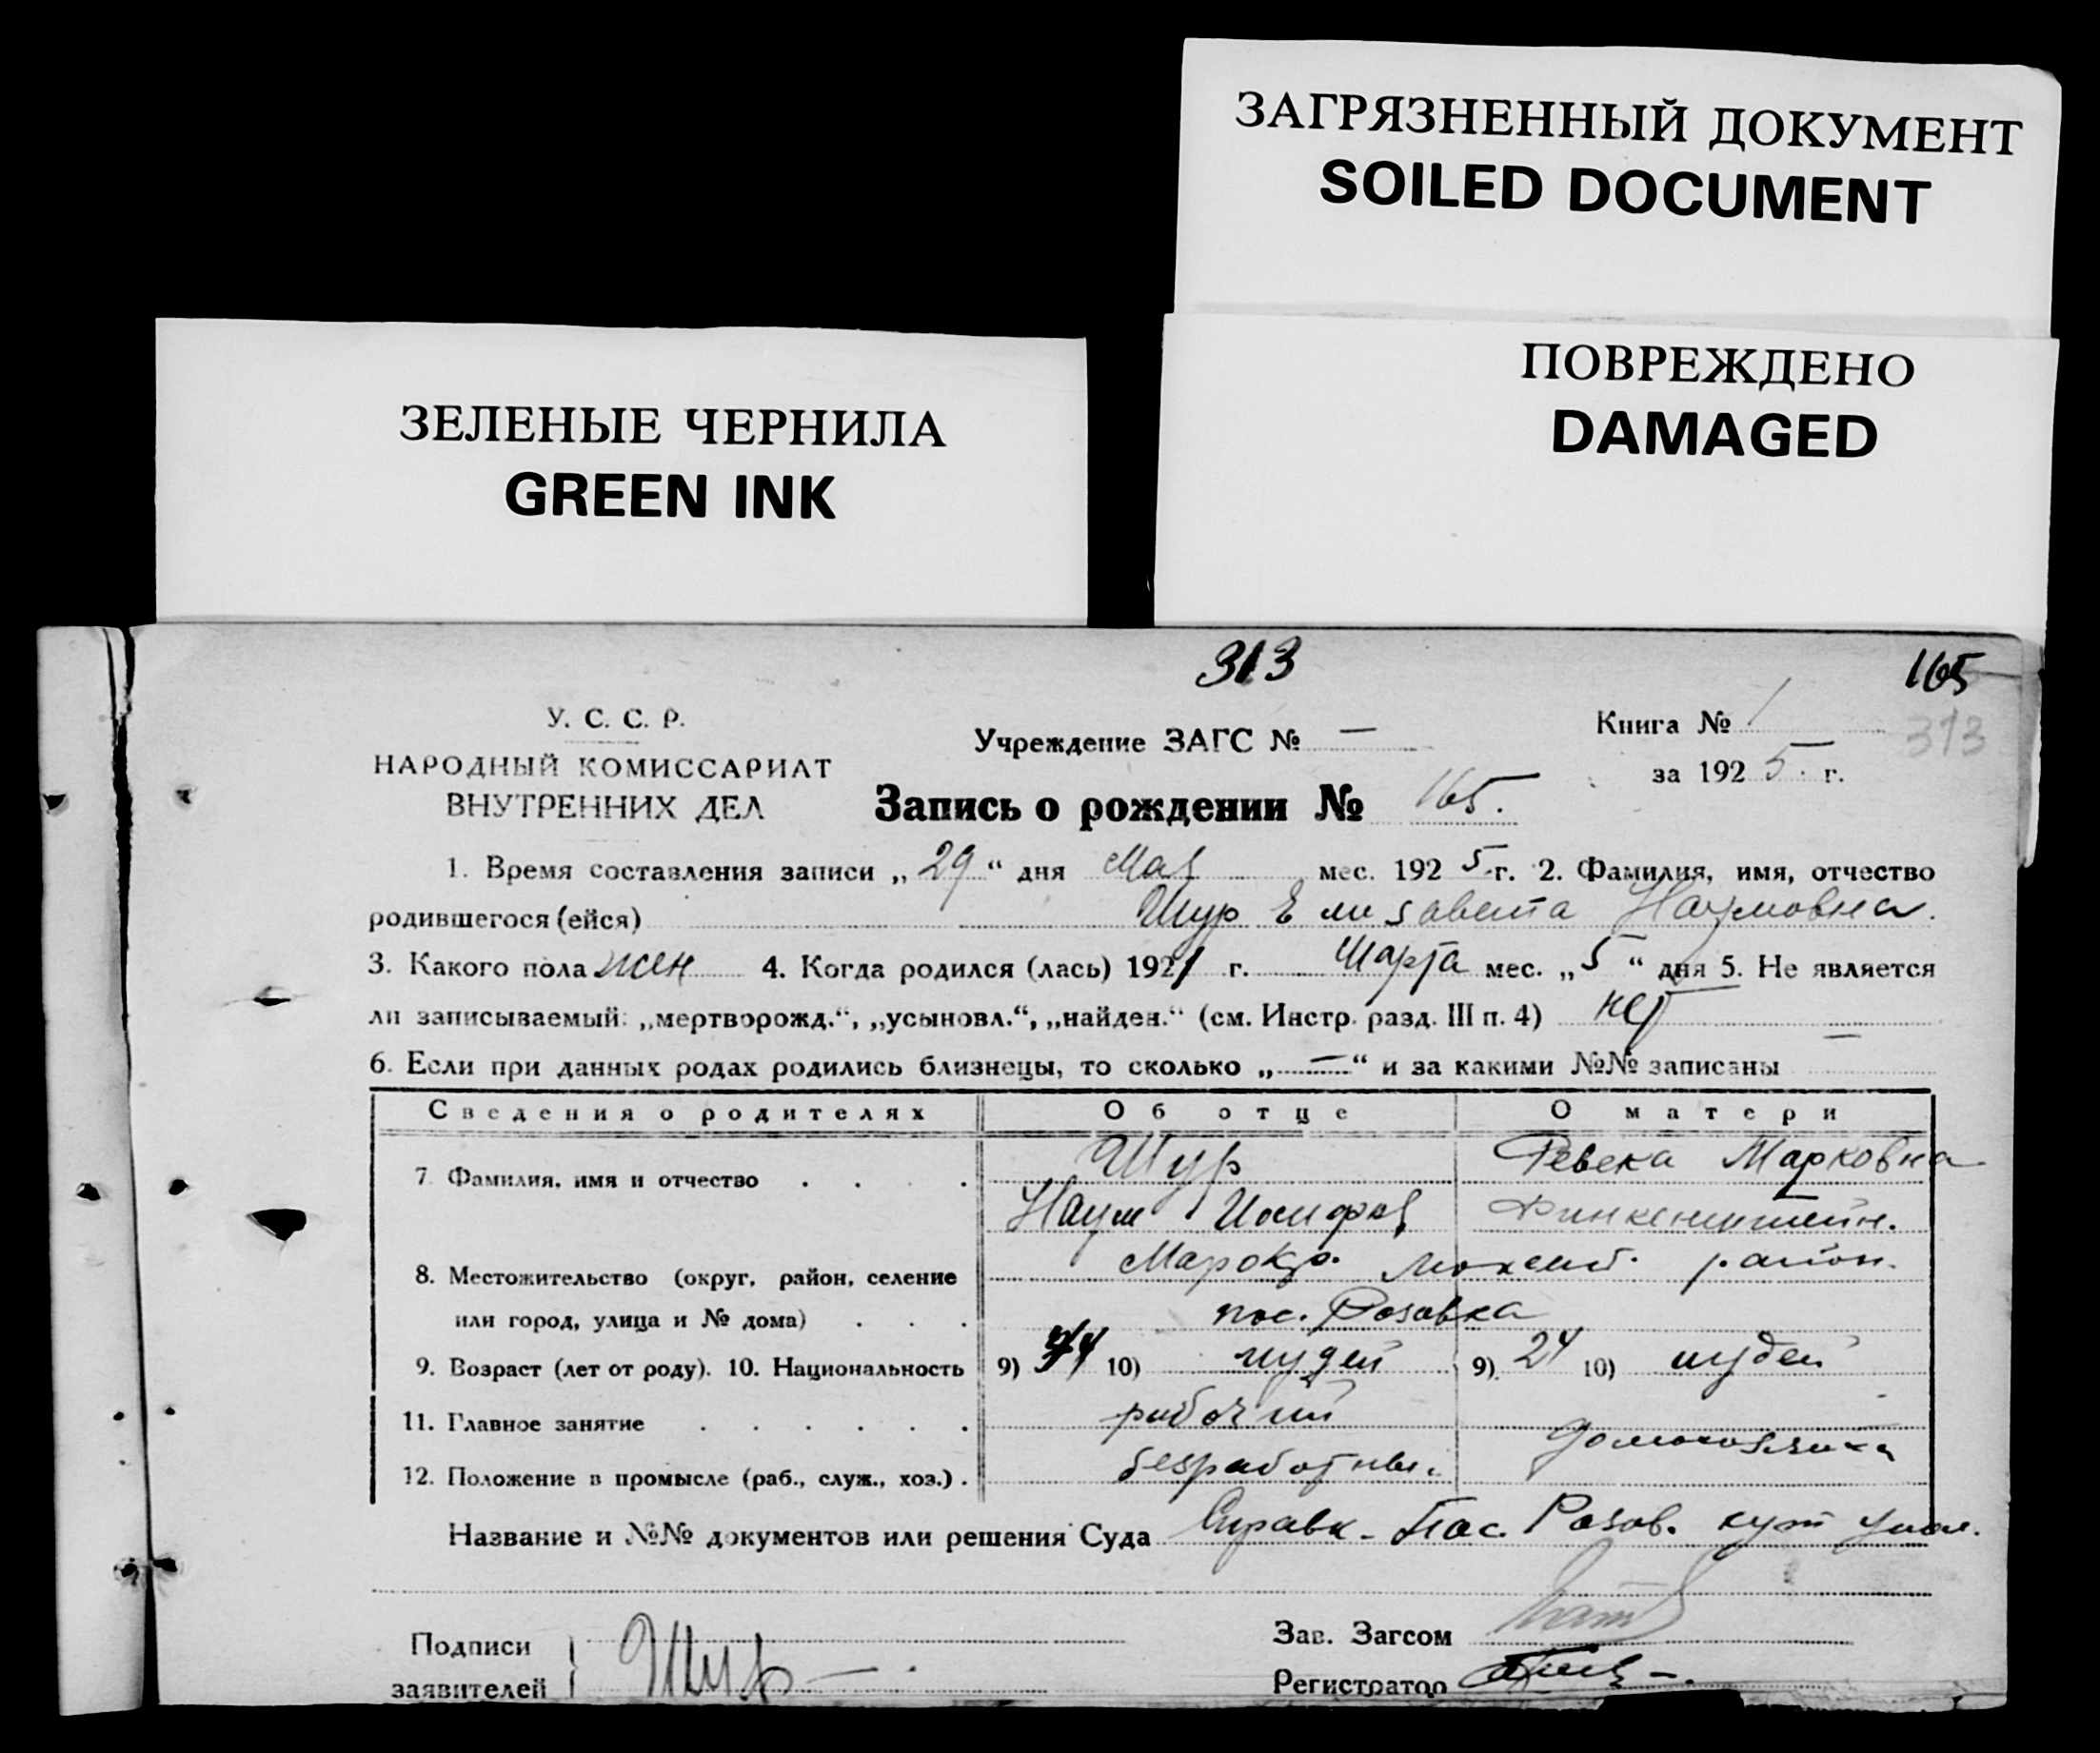 ЗАГРЯЗНЕННЫЙ ДОКУМЕНТ
SOILED DOCUMENT
ПОВРЕЖДЕНО
DAMAGED
ЗЕЛЕНЫЕ ЧЕРНИЛА
GREEN INK
313
165
313
У. С. С. Р.
НАРОДНЫЙ КОМИССАРИАТ
ВНУТРЕННИХ ДЕЛ
Учреждение ЗАГС № —
Книга № 1
за 1925 г.
Запись о рождении № 165.
1. Время составления записи „29“ дня Мая мес. 1925 г. 2. Фамилия, имя, отчество
родившегося (ейся) Шур Елизавета Наумовна.
3. Какого пола жен 4. Когда родился (лась) 1921 г. Марта мес. „5“ дня 5. Не является
ли записываемый: „мертворожд.“, „усыновл.“, „найден.“ (см. Инстр. разд. III п. 4) нет
6. Если при данных родах родились близнецы, то сколько „—“ и за какими №№ записаны —
Сведения о родителях Об отце О матери
7. Фамилия, имя и отчество . . . . Шур Ревека Марковна
Наум Иосифов Финкенштейн.
8. Местожительство (округ, район, селение Марокр. район.
или город, улица и № дома) . . . пос. Розовка
9. Возраст (лет от роду). 10. Национальность 9) 10) иудей 9) 24 10) иудей
11. Главное занятие . . . . . . рабочий
домохозяйка
12. Положение в промысле (раб., служ., хоз.) . безработный.
Название и №№ документов или решения Суда Справк. Пос. Розов.
Подписи
заявителей } Шур —.
Зав. Загсом
Регистратор